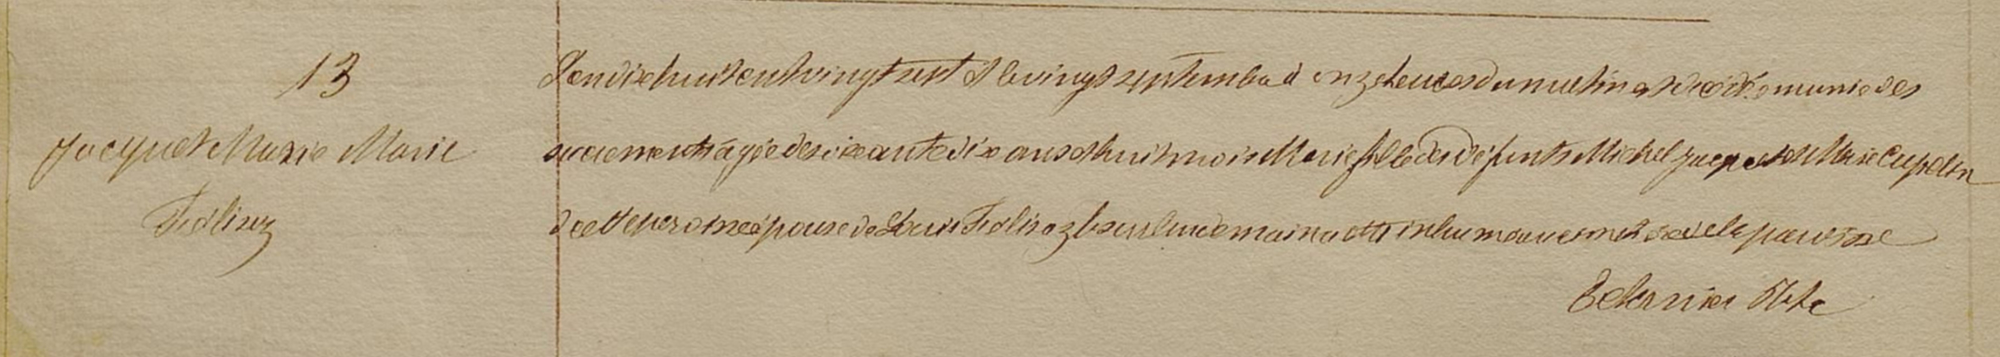 13
Jacquet Marie Marie
Fedlinz
L'an dix huit cent vingt sept et le vingt septembre à onze heures du matin est décédée munie des
sacrements agée de soixante dix ans et huit mois Marie fille des défunts Michel Jacquet et Marie
de cette paroisse épouse de Louis le lendemain a été inhumée au cimetière de la paroisse